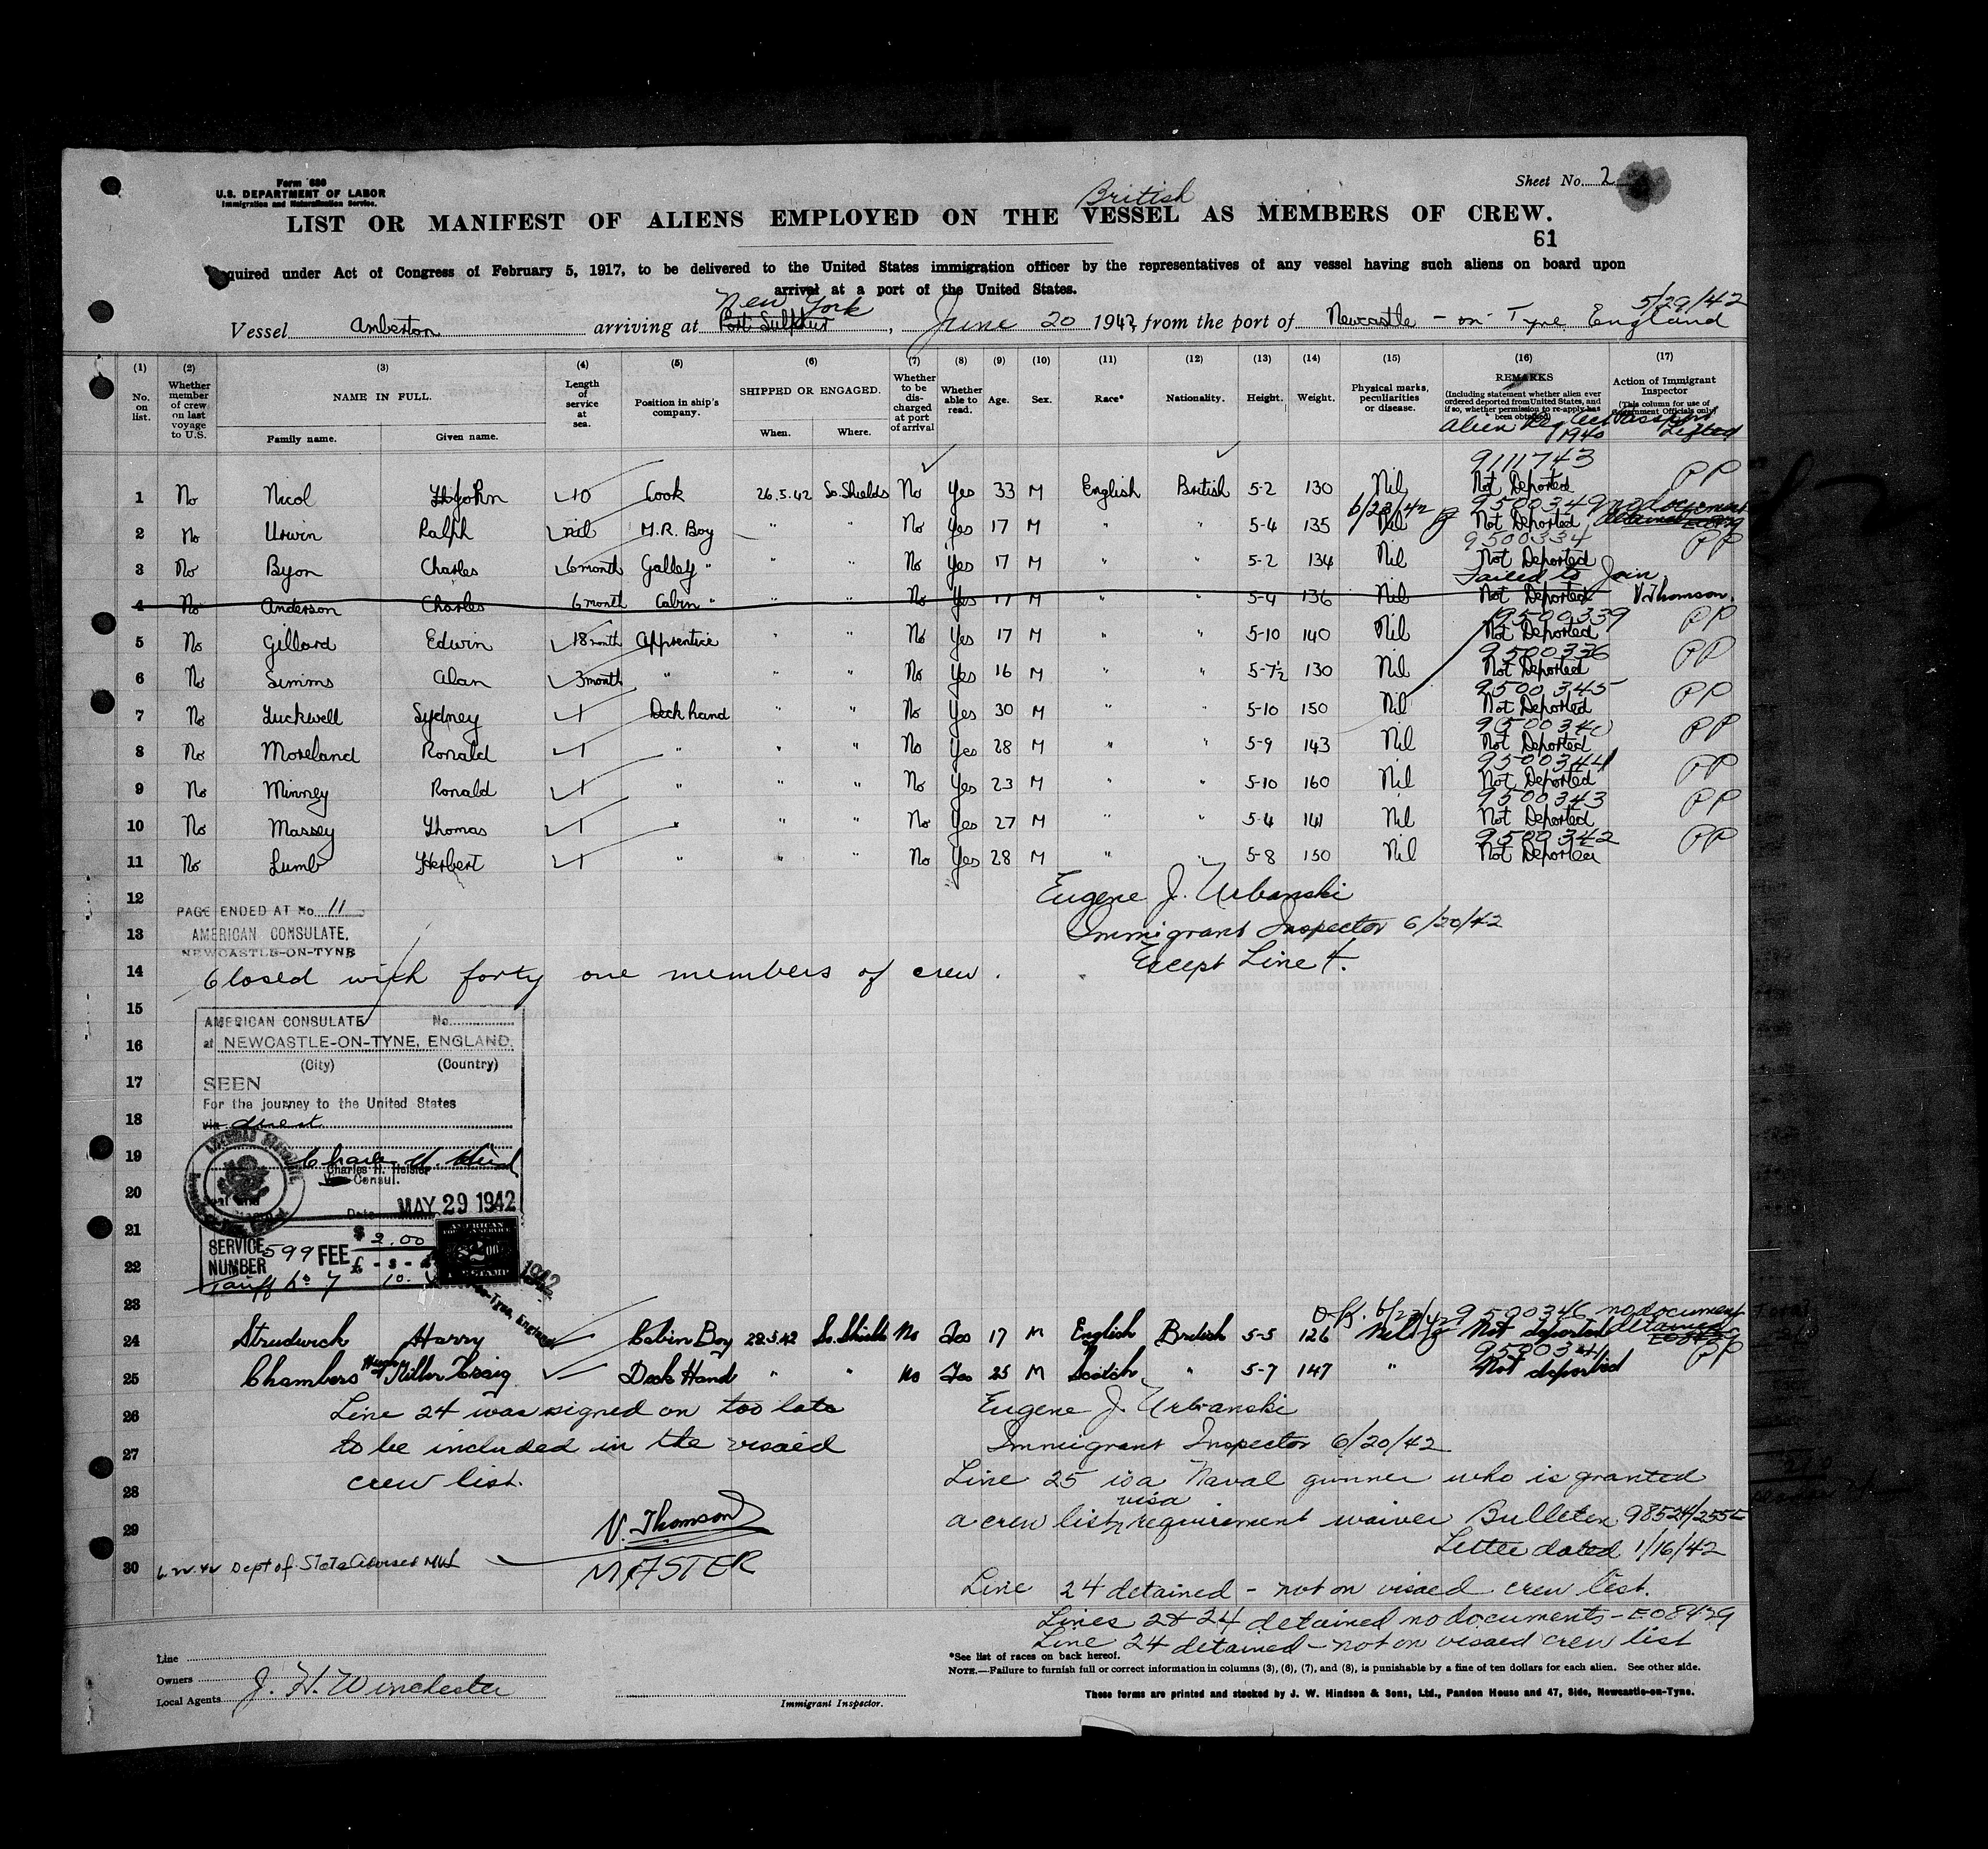 Form 680
U.S. DEPARTMENT OF LABOR
Immigration and Naturalization Service.
Sheet No. 2
British
LIST OR MANIFEST OF ALIENS EMPLOYED ON THE VESSEL AS MEMBERS OF CREW.
61
quired under Act of Congress of February 5, 1917, to be delivered to the United States immigration officer by the representatives of any vessel having such aliens on board upon
arrival at a port of the United States.
New York 5/29/42
Vessel Amberton arriving at Port Sulphur, June 20 1942, from the port of Newcastle - on - Tyne England
(1) (2) (3) (4) (5) (6) (7) (8) (9) (10) (11) (12) (13) (14) (15) (16) (17)
No. on list. Whether member of crew on last voyage to U.S. NAME IN FULL. Family name. Given name. Length of service at sea. Position in ship's company. SHIPPED OR ENGAGED. When. Where. Whether to be discharged at port of arrival Whether able to read. Age. Sex. Race* Nationality. Height. Weight. Physical marks, peculiarities or disease. REMARKS (Including statement whether alien ever ordered deported from United States, and if so, whether permission to re-apply has been obtained) Action of Immigrant Inspector (This column for use of Government Officials only)
Alien Reg Act 1940 Passport Lifted
9111743 PP
1 No Nicol John 10 Cook 26.5.42 So. Shields No Yes 33 M English British 5-2 130 Nil Not Deported
6/23/42 9500349 no document
2 No Urwin Ralph nil M.R. Boy " " No Yes 17 M " " 5-4 135 Nil Not Deported detained
9500334 PP
3 No Byon Charles 6 month Galley " " " No Yes 17 M " " 5-2 134 Nil Not Deported
Failed to Join
4 No Anderson Charles 6 month Cabin " " " No Yes 17 M " " 5-9 136 Nil Not Deported V. Thomson.
9500339 PP
5 No Gillard Edwin 18 month Apprentice " " No Yes 17 M " " 5-10 140 Nil Not Deported
9500336 PP
6 No Simms Alan 3 month " " " No Yes 16 M " " 5-7½ 130 Nil Not Deported
9500345 PP
7 No Tuckwell Sydney 1 Deck hand " " No Yes 30 M " " 5-10 150 Nil Not Deported
9500340 PP
8 No Moreland Ronald 1 " " " No Yes 28 M " " 5-9 143 Nil Not Deported
9500344 PP
9 No Minney Ronald 1 " " " No Yes 23 M " " 5-10 160 Nil Not Deported
9500343 PP
10 No Massey Thomas 1 " " " No Yes 27 M " " 5-4 141 Nil Not Deported
9500342 PP
11 No Lumb Herbert 1 " " " No Yes 28 M " " 5-8 150 Nil Not Deported
12
Eugene J. Urbanski
PAGE ENDED AT No. 11
13
AMERICAN CONSULATE,
Immigrant Inspector 6/20/42
NEWCASTLE-ON-TYNE
Except Line 4.
14
Closed with forty one members of crew.
15
AMERICAN CONSULATE No.
at NEWCASTLE-ON-TYNE, ENGLAND.
16
(City) (Country)
17
SEEN
For the journey to the United States
18
via direct
19
Charles H. Heisler
Consul.
20
Date MAY 29 1942
21
SERVICE NUMBER 599 FEE $ 2.00
22
Tariff No 7
1942
23
O.K. 6/23/42 9500346 no document
24 Strudwick Harry Cabin Boy 28.5.42 So. Shields No Yes 17 M English British 5-5 126 Nil Not deported detained
PP
25 Chambers Hugh Miller Craig Deck Hand " " No Yes 25 M Scotch " 5-7 147 " Not deported
26
Line 24 was signed on too late
Eugene J. Urbanski
27
to be included in the visaed
Immigrant Inspector 6/20/42
28
crew list.
Line 25 is a Naval gunner who is granted
29
V. Thomson
a crew list visa requirement waiver Bulletin
Letter dated 1/16/42
30
Dept of State advised
MASTER
Line 24 detained - not on visaed crew list.
Lines 2 & 24 detained no documents - EO 8429
Line 24 detained - not on visaed crew list
Line
*See list of races on back hereof.
Owners
NOTE.—Failure to furnish full or correct information in columns (3), (6), (7), and (8), is punishable by a fine of ten dollars for each alien. See other side.
Local Agents J. H. Winchester
Immigrant Inspector.
These forms are printed and stocked by J. W. Hindson & Sons, Ltd., Pandon House and 47, Side, Newcastle-on-Tyne.